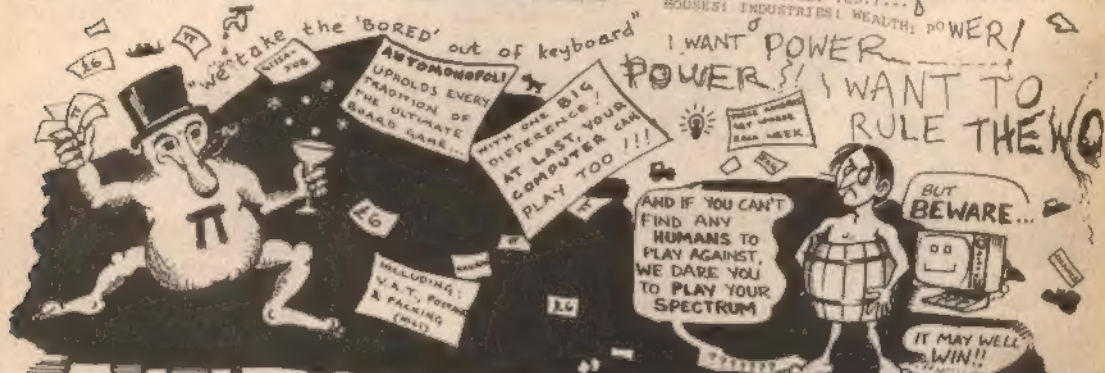 HOUSES! INDUSTRIES! WEALTH! POWER!
"we take the 'BORED' out of keyboard"
I WANT POWER
POWER! I WANT TO
RULE THE WO
£6
π
AUTOMONOPOLI
UPHOLDS EVERY
TRADITION OF
THE ULTIMATE
BOARD GAME...
WITH ONE BIG
DIFFERENCE!
AT LAST, YOUR
COMPUTER CAN
PLAY TOO!!!
π
£6
INCLUDING:
V.A.T., POSTAGE
& PACKING
£6
AND IF YOU CAN'T
FIND ANY
HUMANS TO
PLAY AGAINST,
WE DARE YOU
TO PLAY YOUR
SPECTRUM
???????
BUT
BEWARE...
IT MAY WELL
WIN!!